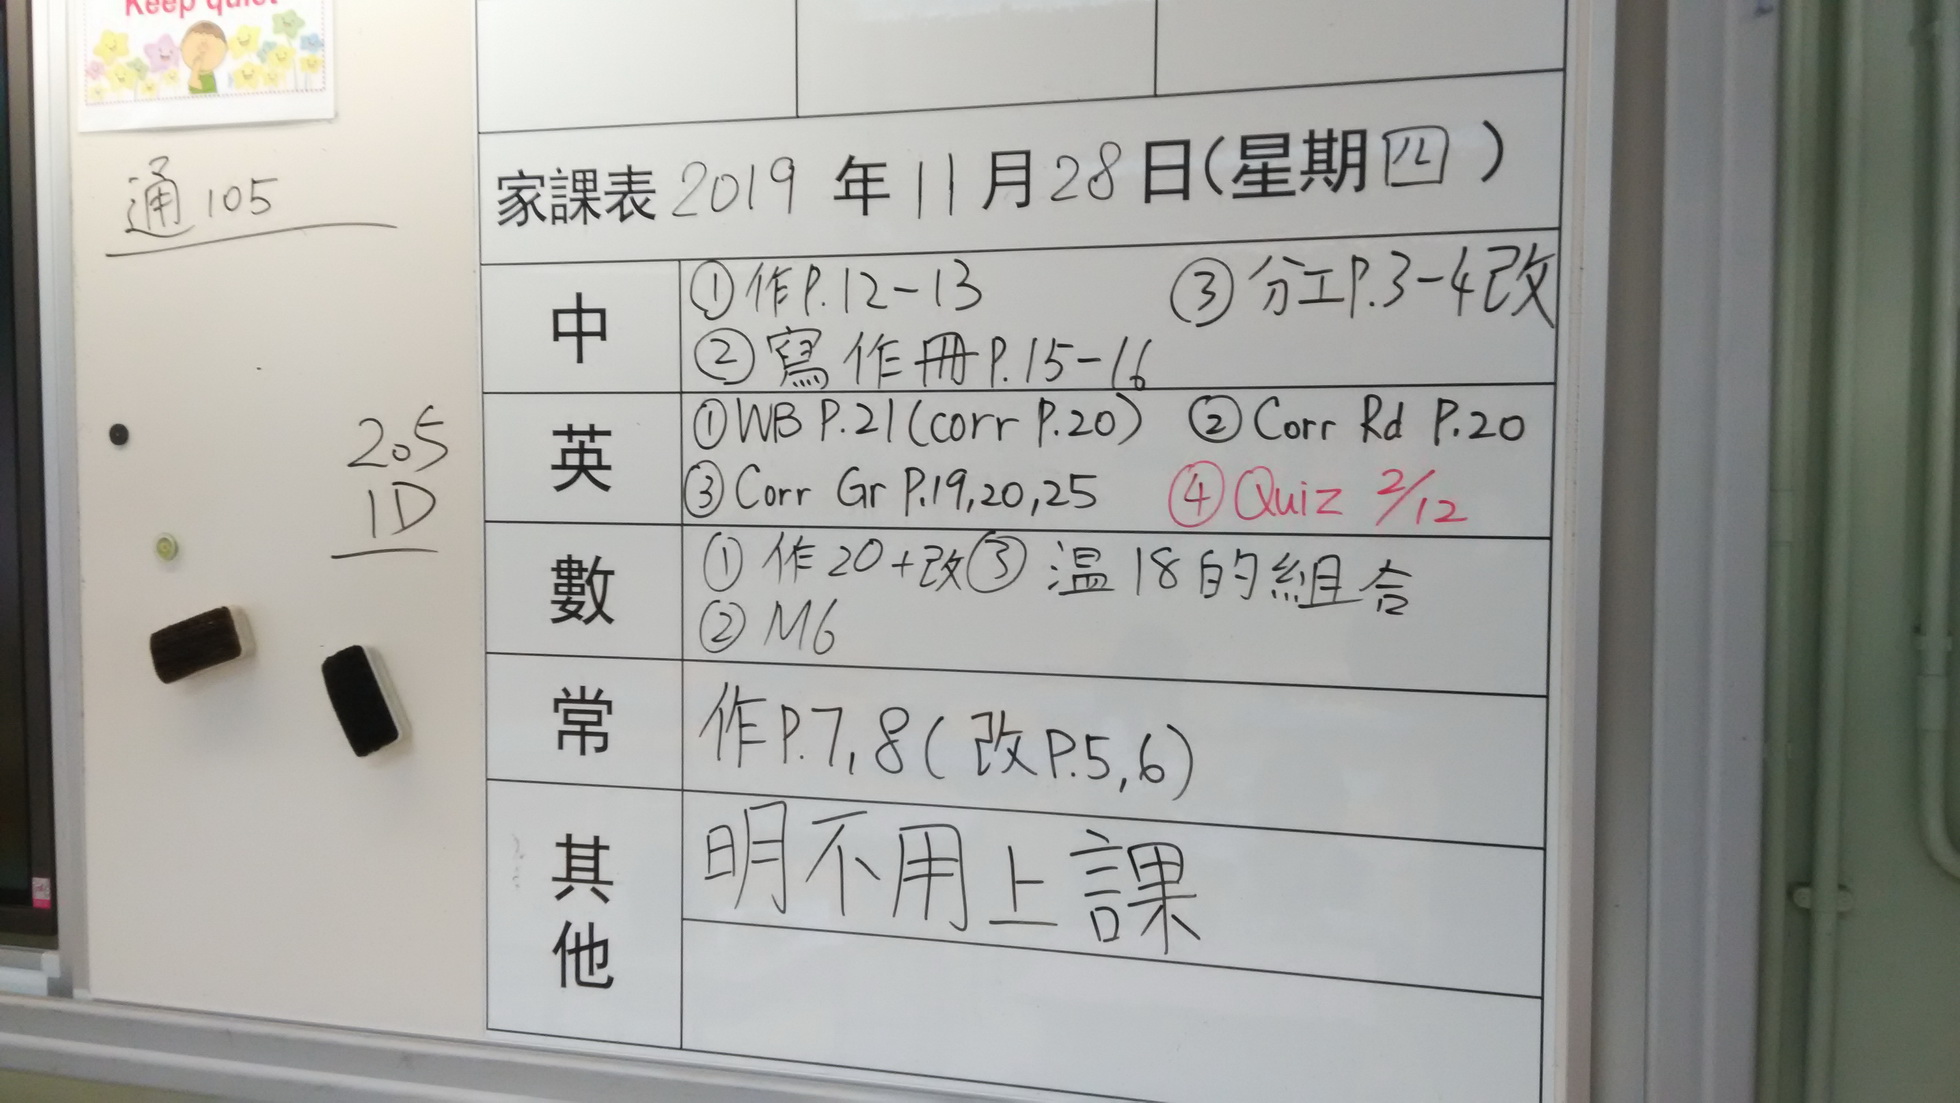 Keep quiet
通105
205
1D
家課表 2019 年 11 月 28 日(星期四)
中
①作P.12-13 ③分工P.3-4改
②寫作冊P.15-16
英
①WB P.21(corr P.20) ②Corr Rd P.20
③Corr Gr P.19,20,25 ④Quiz 2/12
數
①作20+改③温18的組合
②M6
常
作P.7,8(改P.5,6)
其他
明不用上課